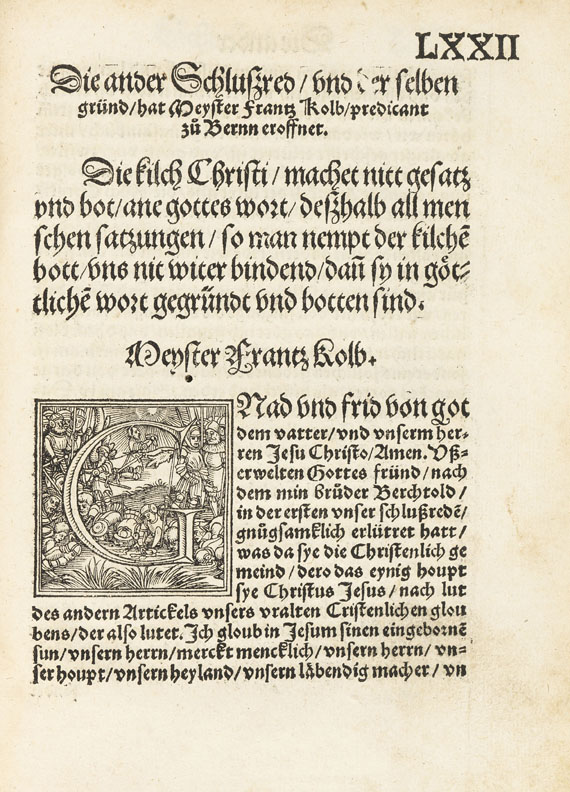 LXXII
Die ander Schlußred / vnd der selben
gründ/hat Meyster Frantz Kolb/predicant
zů Bernn eroffnet.
Die kilch Christi / machet nitt gesatz
vnd bot/ane gottes wort/ deßhalb all men
schen satzungen / so man nempt der kilchē
bott/vns nit witer bindend/dañ sy in gôt⸗
tlichē wort gegründt vnd botten sind.
Meyster Frantz Kolb.
GNad vnd frid von got
dem vatter/vnd vnserm her⸗
ren Jesu Christo/Amen. Vß⸗
erwelten Gottes fründ/nach
dem min brůder Berchtold/
in der ersten vnser schlußredē/
gnůgsamklich erlütret hatt/
was da sye die Christenlich ge
meind/dero das eynig houpt
sye Christus Jesus/nach lut
des andern Artickels vnsers vralten Cristenlichen glou
bens/der also lutet. Ich gloub in Jesum sinen eingebornē
sun/vnsern herrn/merckt mencklich/vnsern herrn/vn⸗
ser houpt/vnsern heyland/vnsern låbendig macher/vn